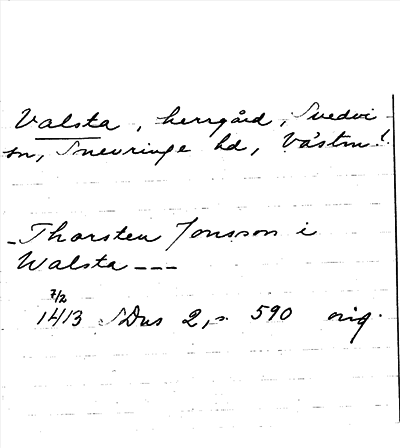 Valsta, herrgård, Svedvi
sn, Snevringe hd, Västm!
- Thorsten Jonsson i
Walsta ---
7/2
1413 SDns 2, s. 590 orig.